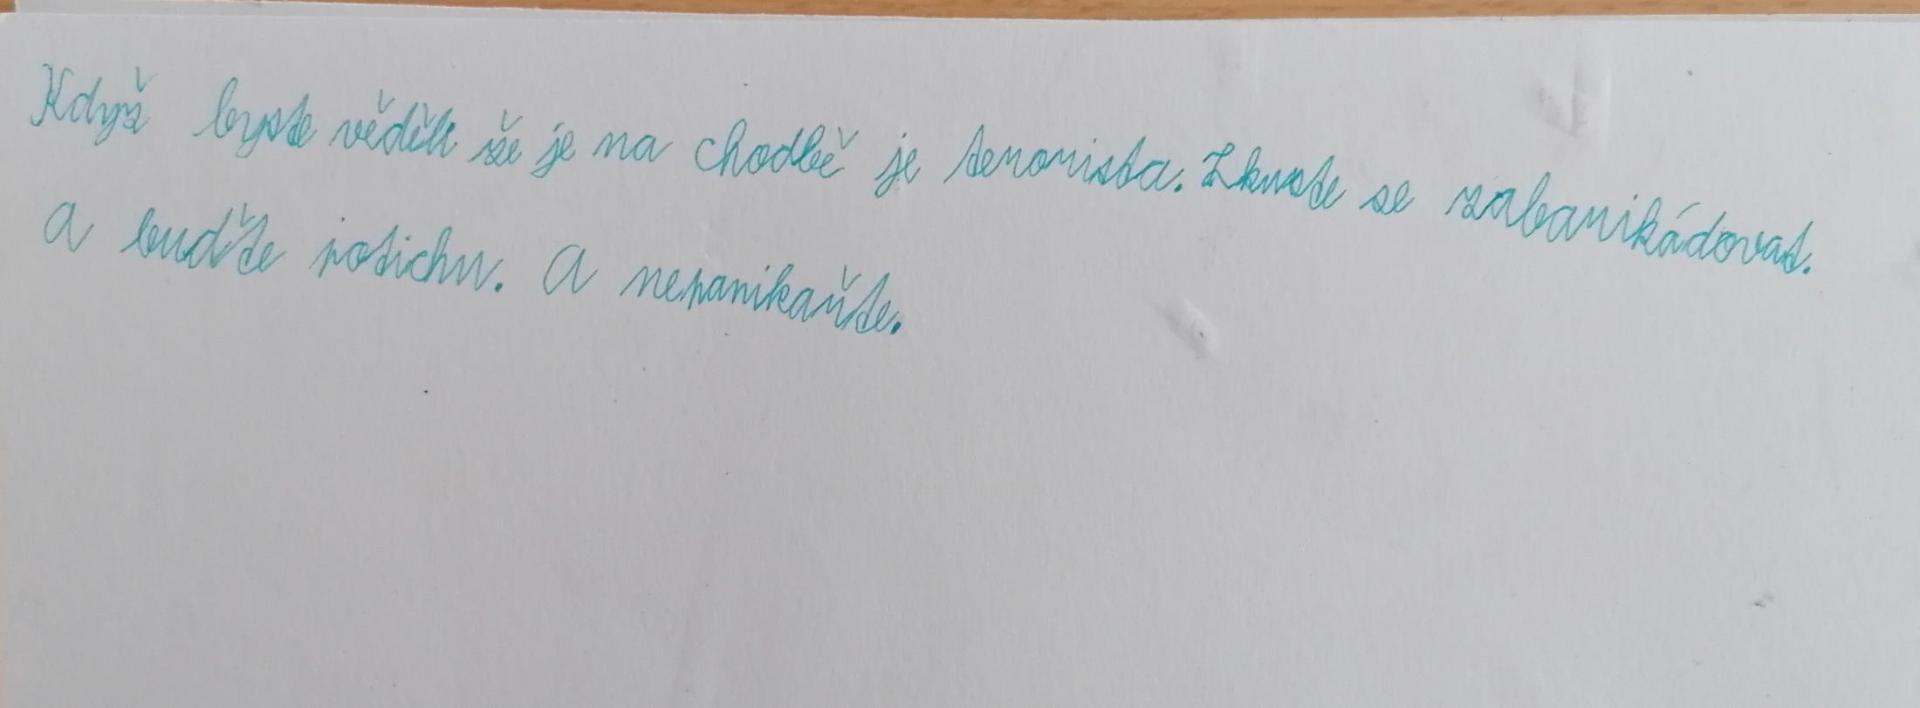 Když byste věděli že je na chodbě je terorista. Zkuste se zabarikádovat.
A buďte potichu. A nepanikařte.